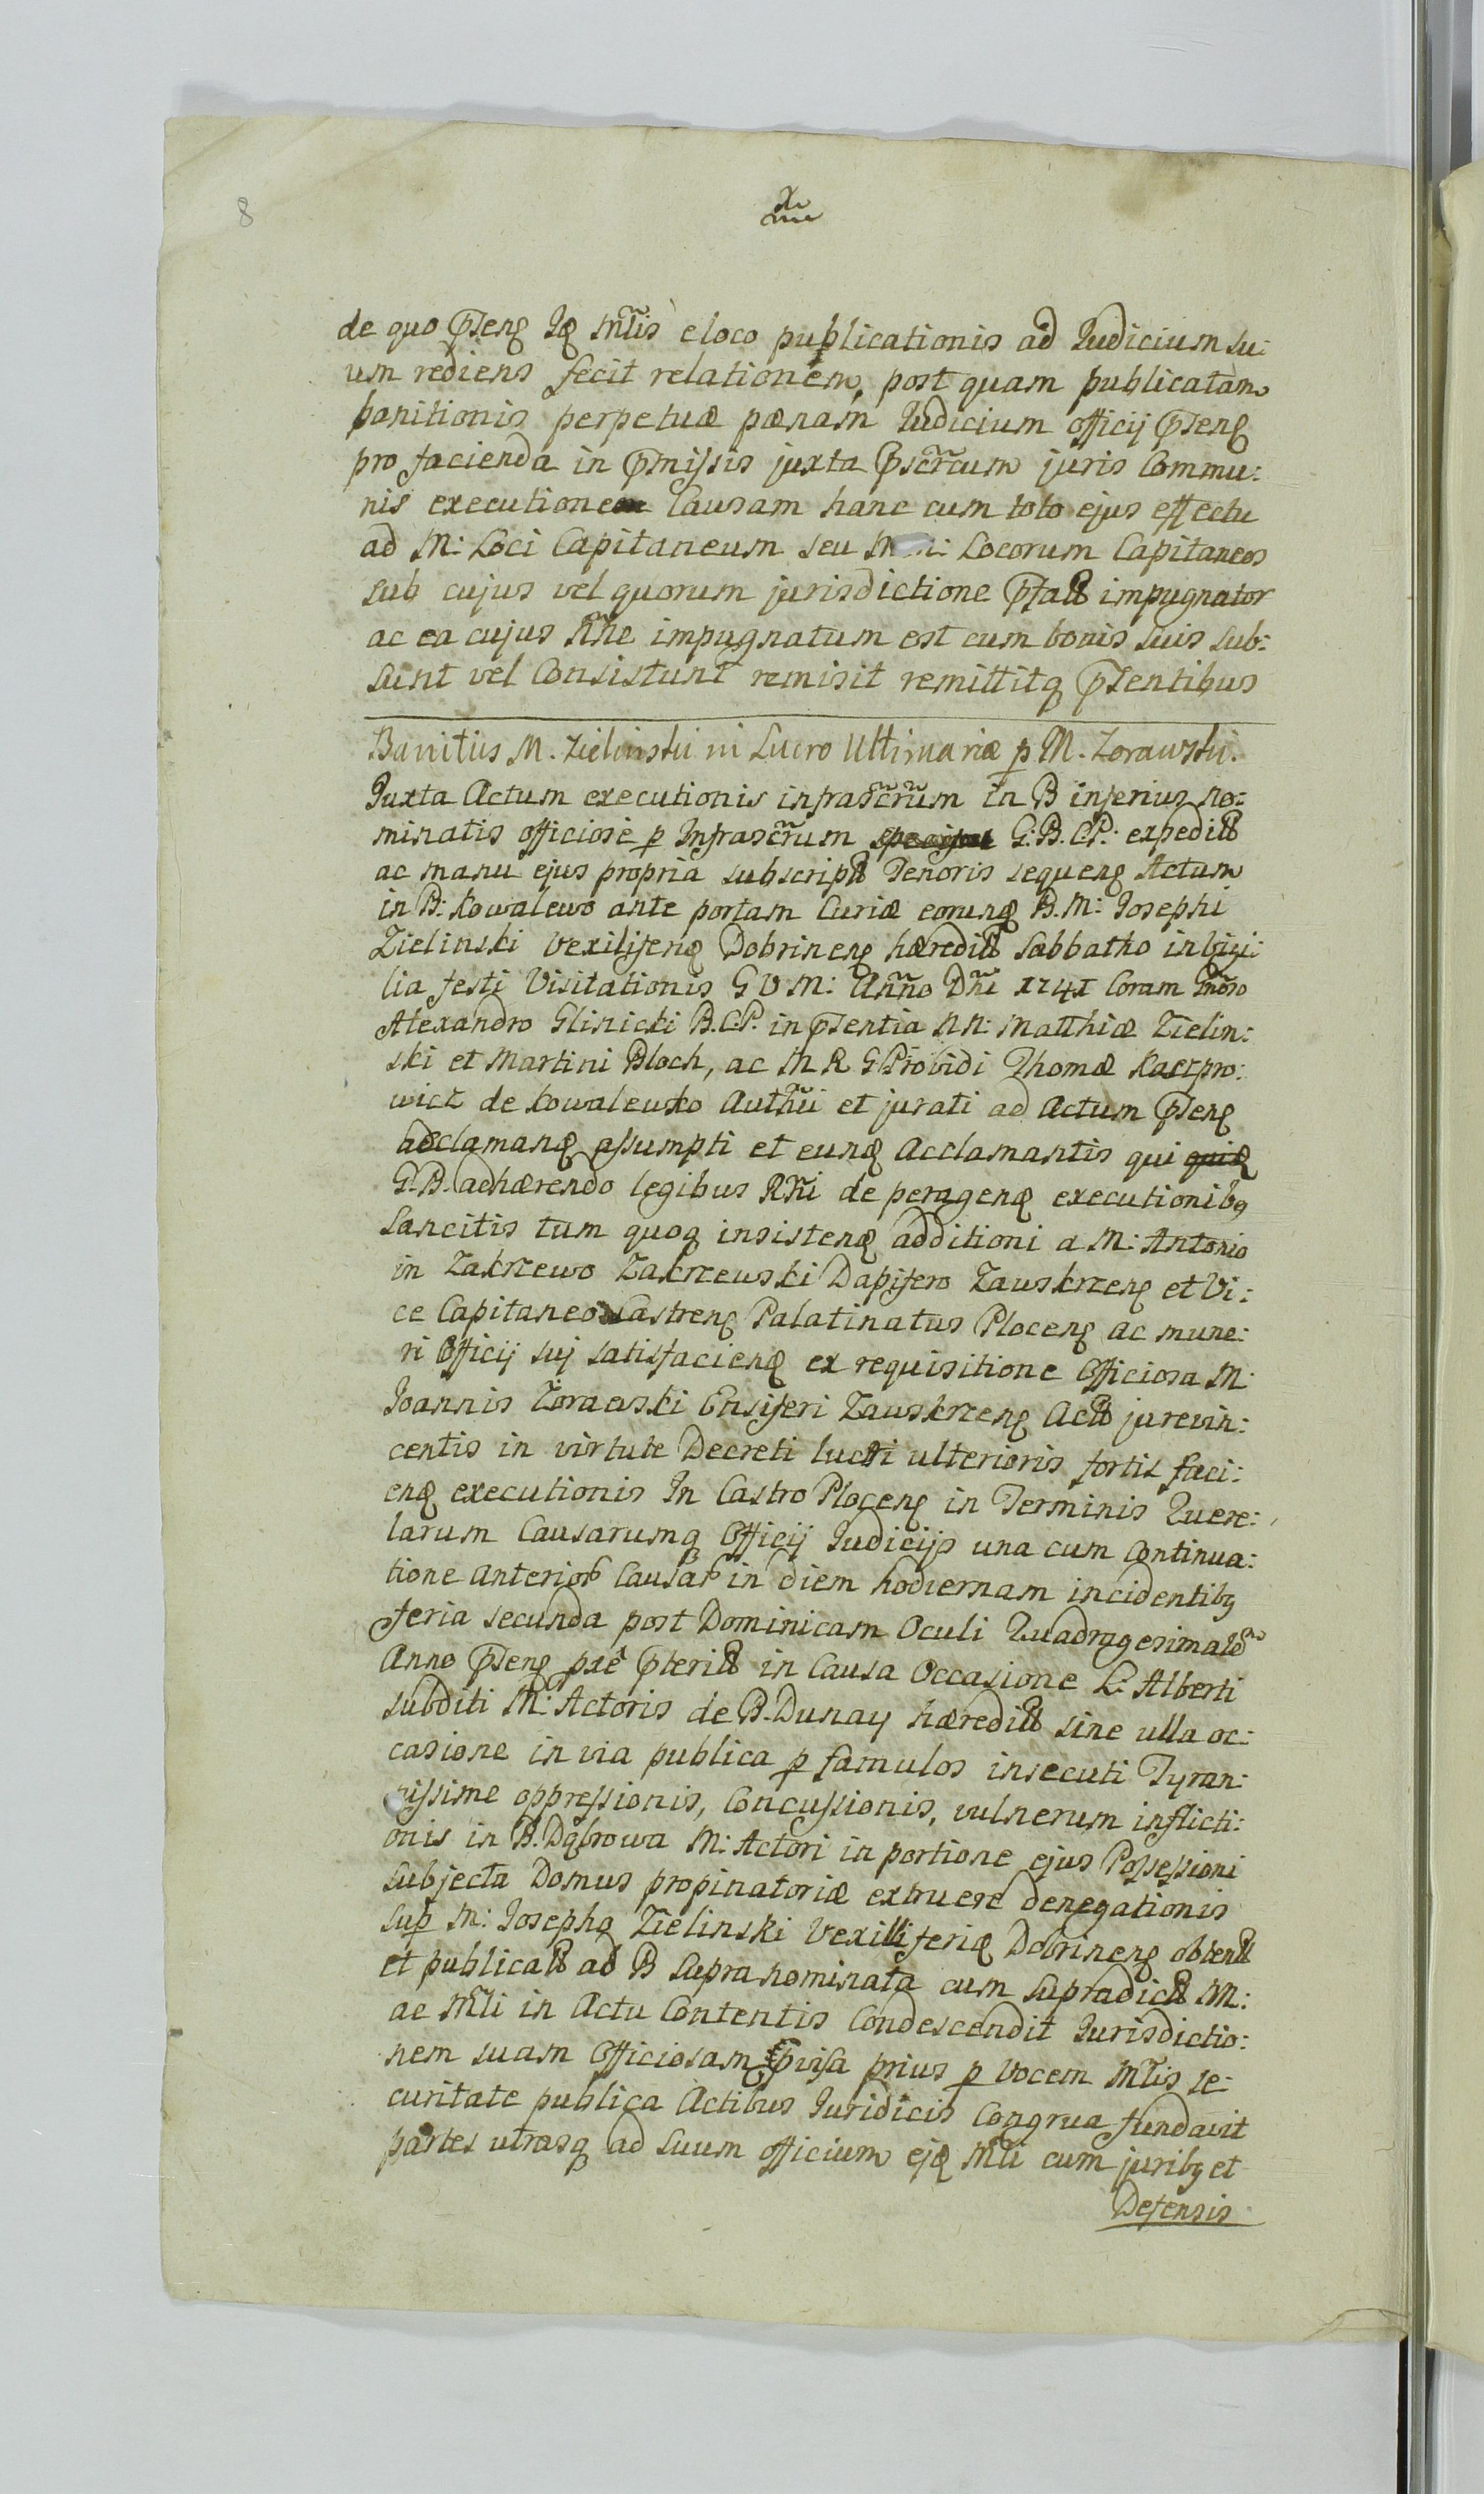 8
de quo p̃seng Jq Mr̃lis e loco publicationis ad Judicium su:
um rediens fecit relationem, post quam publicatam
banitionis perpetuæ pænam Judicium officij p̃seng
pro facienda in p̃missis juxta p̃scr̃tum juris Commu:
nis executione Causam hanc cum toto ejus effectu
ad M: Loci Capitaneum seu Locorum Capitaneos
sub cujus vel quorum jurisdictione impugnator
ac ea cujus Rñe impugnatum est cum bonis suis sub:
sunt vel Consistunt remisit remittitq p̃sentibus
Banitus M. Zielinski in Lucro Ulterioris p M. Zorawski.
Juxta Actum executionis infrascr̃um in B inferius no:
minatis officiose p Infrascr̃um G: B. C.P: expedit
ac manu ejus propria subscript Tenoris sequeng Actum
in B: Kowalewo ante portam Curiæ eorunq B. M: Josephi
Zielinski Vexiliferi Dobrineng hæredit Sabbatho in Vigi:
lia festi Visitationis G V M: Anño Dñi 1741 Coram Gnõso
Alexandro Glinicki B.C.P. in p̃sentia N N: Matthiæ Zielin:
ski et Martini Bloch, ac M R G Providi Thomæ Kacrpro:
wicz de Kowalewko Auth̃ui et jurati ad Actum p̃seng
acclamanq assumpti et eunq Acclamantis qui
G. B. adhærendo legibus Rñi de peragenq executionibg
Sancitis tum quoq insistenq additioni a M: Antonio
in Zakrzewo Zakrzewski Dapifero Zawskrzeng et Vi:
ce Capitaneo Castreng Palatinatus Ploceng ac mune:
ri Officij sui satisfacienq ex requisitione Officiosa M:
Joannis Zorawski Ensiferi Zawskrzeng jurevin:
centis in virtute Decreti lucri ulterioris fortis faci:
enq executionis In Castro Ploceng in Terminis Quere:
larum Causarumq Officij Judicijs una cum Continua:
tione in diem hodiernam incidentibg
feria secunda post Dominicam Oculi Quadragesimale
Anno p̃seng in Causa Occasione L: Alberti
subditi M: Actoris de B. Dunay hæredit sine ulla oc:
casione in via publica p famulos insecuti Tyran:
nissime oppressionis, Concussionis, vulnerum inflicti:
onis in B. Dąbrowa M: Actori in portione ejus Possessioni
subjecta Domus propinatoriæ extruere denegationis
sup M: Josepho Zielinski Vexilliferiq Dobrineng obtent
et publicat ad B supranominata cum supradict M:
ac Mr̃li in Actu Contentis Condescendit Jurisdictio:
nem suam Officiosam prius p Vocem Mr̃lis se:
curitate publica Actibus Juridicis Congrua fundavit
partes utrasq ad suum officium ejq Mr̃li cum juribg et
Defensis